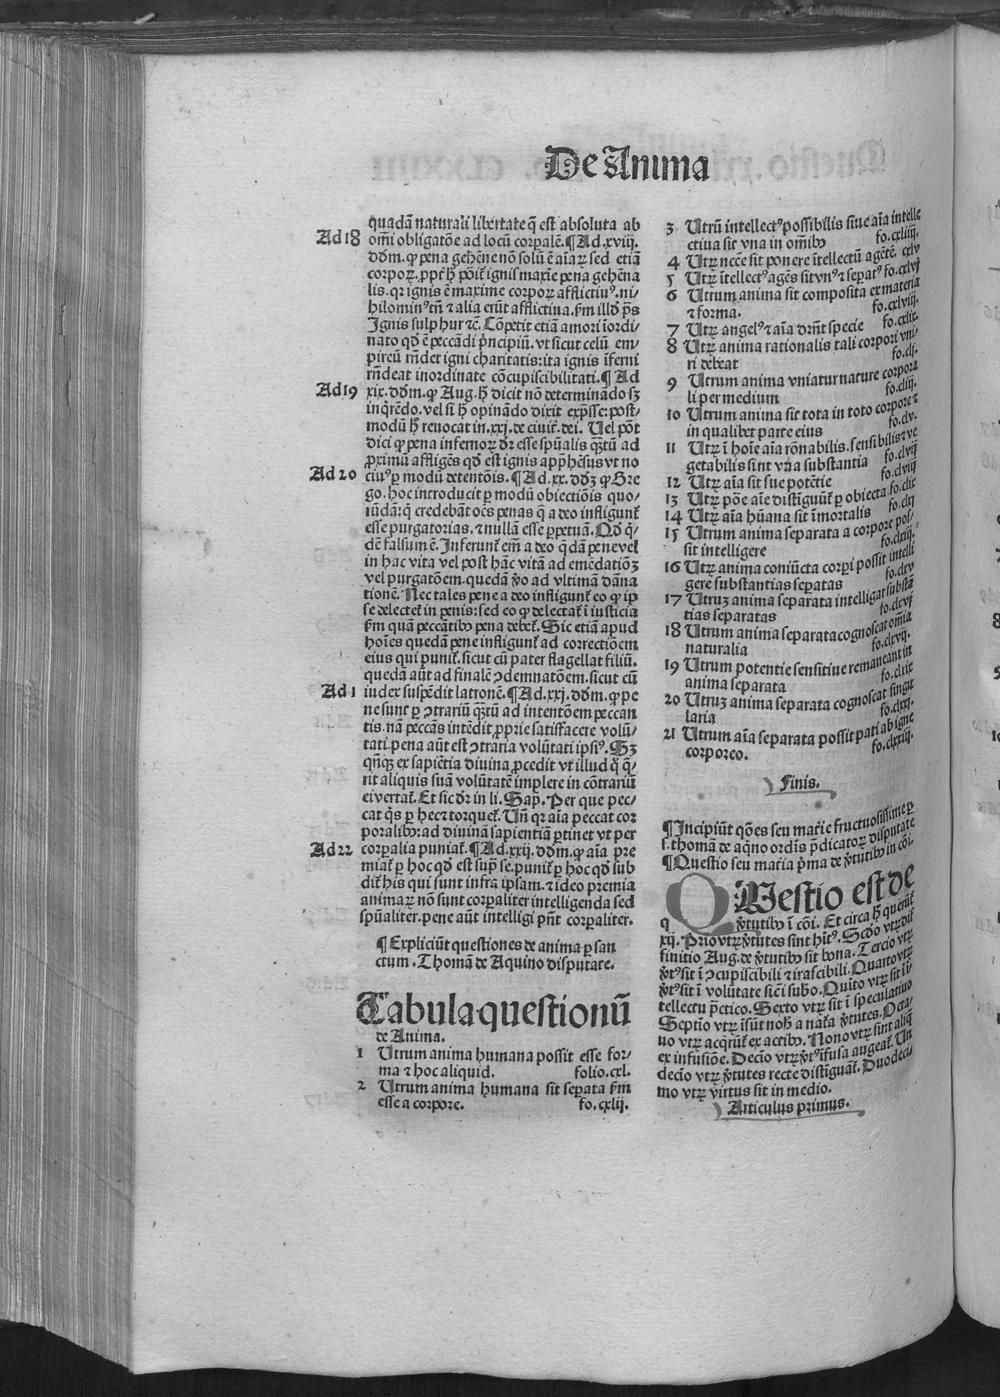 De Anima
quadā naturali libertate q̄ est absoluta ab
Ad 18
om̄i obligatōe ad locū corꝑalē. ¶ Ad .xviij.
dd̄m. ꝙ pena gehēne nō solū ē aīaꝝ sed etiā
corpoꝝ.
lis. qꝛ ignis ē maxime corpoꝝ afflictiuꝰ. ni-
Ignis sulphur ⁊c̄. Cōpetit etiā amori īordi/
nato qd̄ ē peccādi pͥncipiū. vt sicut celū em-
pireū rn̄det igni charitatis: ita ignis īferni
rn̄deat inordinate cōcupiscibilitati. ¶ Ad
Ad 19
xix. dd̄m. ꝙ Aug. hͦ dicit nō determinādo sꝫ
inq̄rēdo. vel si hͦ opinādo dixit exp̄sse: post-
modū hͦ reuocat in .xxj. de ciuit̄. dei. Uel pōt
dici ꝙ pena infernoꝝ dr̄ esse spūalis qȝtū ad
ꝓximū affligēs qd̄ est ignis app̄hēsus vt no
Ad 20
ciuꝰ ꝑ modū detentōis. ¶ Ad .xx. dd̄ꝫ ꝙ Gre
go. hoc introducit ꝑ modū obiectiōis quo-
rūdā: q̄ credebāt oēs penas q̄ a deo infligunt̄
esse purgatorias. ⁊ nullā esse ꝑpetuā. Qd̄ q̄-
dē falsum ē. Inferunt̄ em̄ a deo q̄dā pene vel
in hac vita vel post hāc vitā ad emēdatiōꝫ
vel purgatōem. quedā ꝟo ad vltimā dāna
tionē. Nec tales pene a deo infligunt̄ eo ꝙ ip̄
se delectet̄ in penis: sed eo ꝙ delectat̄ ī iusticia
ẜm quā peccātibꝰ pena debet̄. Sic etiā apud
hoīes quedā pene infligunt̄ ad correctiōem
eius qui punit̄. sicut cū pater flagellat filiū.
quedā aūt ad finalē ꝯdemnatōem. sicut cū
Ad 1
iudex suspēdit latronē. ¶ Ad .xxj. dd̄m. ꝙ pe
ne sunt ꝑ ꝯtrariū qȝtū ad intentōem peccan
tis. nā peccās intēdit ꝓprie satisfacere volū/
tati. pena aūt est ꝯtraria volūtati ipsiꝰ. Sꝫ
qn̄qꝫ ex sapiētia diuina ꝓcedit vt illud qͦ q̄-
rit aliquis suā volūtatē implere in cōtrariū
ei vertat̄. Et sic dr̄ in li. Sap. Per que pec/
cat q̄s ꝑ hec ⁊ torquet̄. Un̄ qꝛ aīa peccat cor
poralibꝰ: ad diuinā sapientiā ꝑtinet vt per
Ad 22
corꝑalia puniat̄. ¶ Ad .xxij. dd̄m. ꝙ aīa pre
miat̄ ꝑ hoc qd̄ est sup̄ se. punit̄ ꝑ hoc qd̄ sub
dit̄ his qui sunt infra ipsam. ⁊ ideo premia
animaꝝ nō sunt corꝑaliter intelligenda sed
spūaliter. pene aūt intelligi pn̄t corꝑaliter.
¶ Expliciūt questiones de anima ꝑ san
ctum . Thomā de Aquino disputate.
Tabula questionū
de Anima.
1 Utrum anima humana possit esse for/
ma ⁊ hoc aliquid. folio .cxl.
2 Utrum anima humana sit seꝑata ẜm
esse a corpore. fo. cxlij.
3 Utrū intellectꝰ possibilis siue aīa intelle
ctiua sit vna in om̄ibꝰ fo. cxliij.
4 Utꝝ ncc̄e sit ponere ītellectū agētē. cxlv
5 Utꝝ ītellectꝰ agēs sit vnꝰ ⁊ seꝑatꝰ fo. cxlvj
6 Utrum anima sit composita ex materia
⁊ forma. fo. cxlviij.
7 Utꝝ angelꝰ ⁊ aīa dr̄nt specie fo. cxlix.
8 Utꝝ anima rationalis tali corpori vni/
ri debeat fo. clj.
9 Utrum anima vniatur nature corpora
li per medium fo. cliij.
10 Utrum anima sit tota in toto corpore ⁊
in qualibet parte eius fo. clv.
11 Utꝝ ī hoīe aīa rōnabilis. sensibilis ⁊ ve
getabilis sint vna substantia fo. clvij
12 Utꝝ aīa sit sue potētie fo. clviij
13 Utꝝ pōe aīe distīguūt̄ ꝑ obiecta fo. clix
14 Utꝝ aīa hūana sit īmortalis fo. clxj
15 Utrum anima separata a corpore pos/
sit intelligere fo. clxiij.
16 Utꝝ anima coniūcta corꝑi possit intelli
gere substantias seꝑatas fo. clxv
17 Utruꝫ anima separata intelligat substā
tias separatas fo. clxvj
18 Utrum anima separata cognoscat om̄ia
naturalia fo. clxvij.
19 Utrum potentie sensitiue remaneant in
anima separata fo. clxix
20 Utruꝫ anima separata cognoscat singu
laria fo. clxxj.
21 Utrum aīa separata possit pati ab igne
corporeo. fo. clxxiij.
Finis.
¶ Incipiūt qōes seu mat̄ie fructuosissime ꝑ
s. thomā de aq̄no ordīs p̄dicatoꝝ disputate
¶ Questio seu mat̄ia pͥma de ꝟtutibꝰ in cōi.
QUestio est de
q ꝟtutibꝰ ī cōi. Et circa hͦ querūt̄
xij. Prīo vtꝝ ꝟtutes sint hītꝰ. Scd̄o vtꝝ dif
finitio Aug. de ꝟtutibꝰ sit bona. Tercio vtꝝ
ꝟtꝰ sit ī ꝯcupiscibili ⁊ irascibili. Quarto vtꝝ
ꝟtꝰ sit ī volūtate sic̄ ī subo. Quīto vtꝝ sit ī ī/
tellectu p̄ctico. Sexto vtꝝ sit ī speculatiuo
Septīo vtꝝ īsūt nob̄ a nat̄a ꝟtutes. Octa/
uo vtꝝ acq̄rūt̄ ex actibꝰ. Nono vtꝝ sint aliq̄
ex infusiōe. Decīo vtꝝ ꝟtꝰ īfusa augeat̄. Un
decīo vtꝝ ꝟtutes recte distīguūt̄. Duodeci/
mo vtꝝ virtus sit in medio.
Articulus primus.